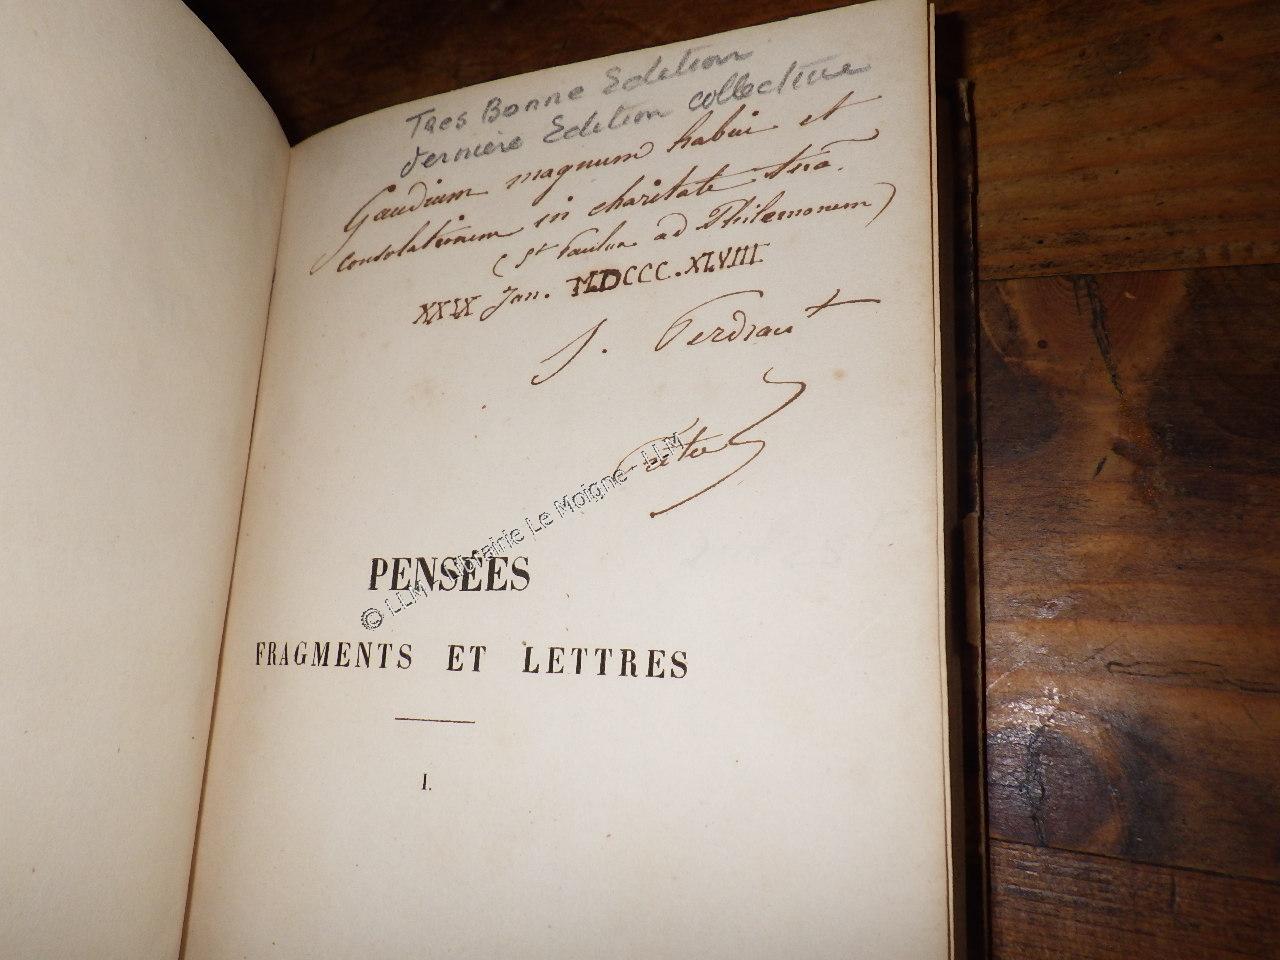 Tres Bonne Edition
derniere Edition collective
Gaudium magnum habui et
consolationem in charitate tuâ.
(St Paulus ad Philemonem)
XXIX Jan. MDCCC.XLVIII
J.
PENSÉES
FRAGMENTS ET LETTRES
I.
© LLM - Librairie Le Moigne - LLM